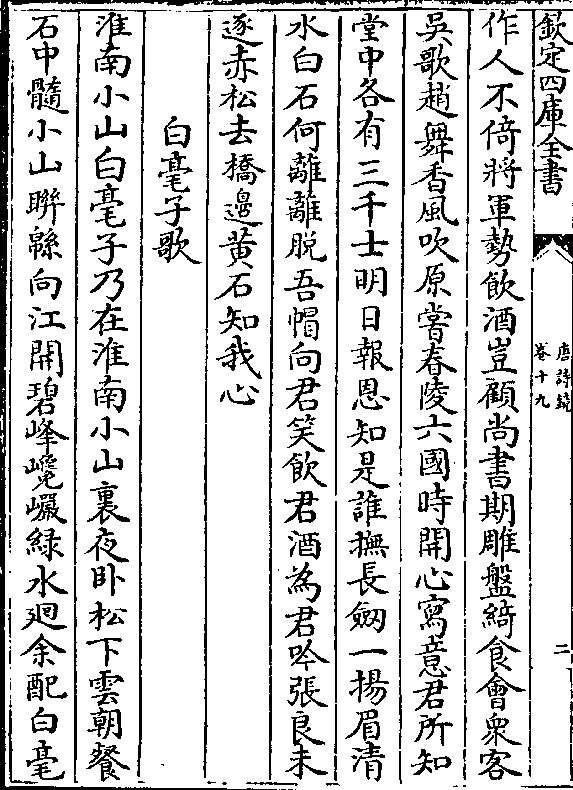 欽定四庫全書
唐詩鏡
卷十九
二
作人不倚將軍勢飲酒豈顧尚書期雕盤綺食會衆客
吳歌趙舞香風吹原嘗春陵六國時開心寫意君所知
堂中各有三千士明日報恩知是誰撫長劒一揚眉清
水白石何離離脱吾帽向君笑飲君酒為君吟張良未
逐赤松去橋邊黄石知我心
白毫子歌
淮南小山白毫子乃在淮南小山裏夜卧松下雲朝餐
石中髓小山聨緜向江開碧峰巉巗緑水廻余配白毫